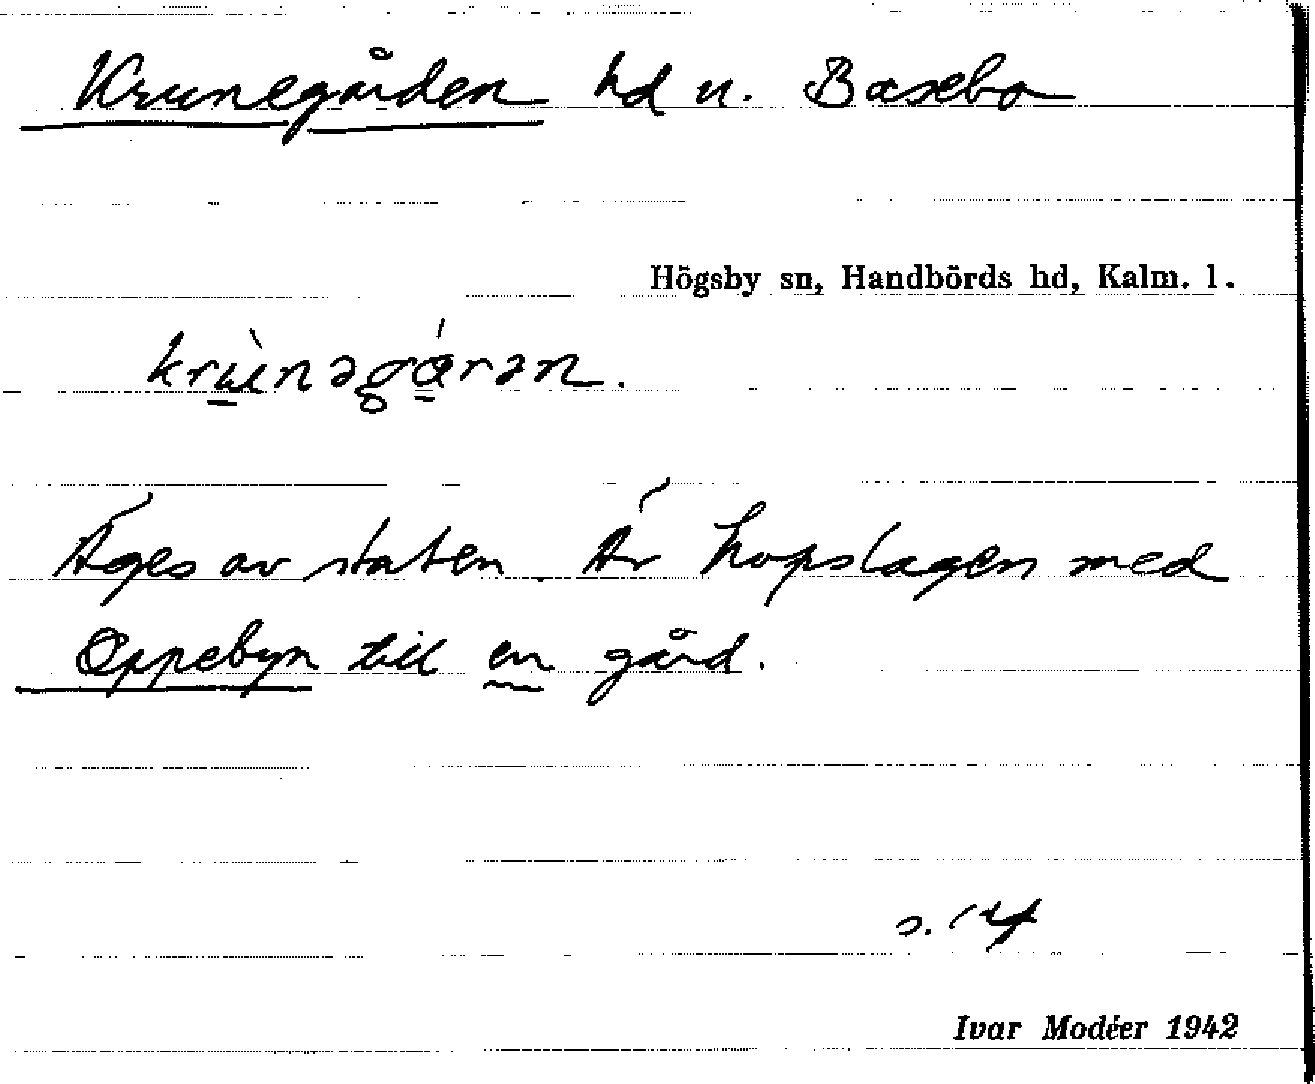 Krunegården hd u. Baxebo
Högsby sn, Handbörds hd, Kalm. l.
krùnəgárən.
Äges av staten. Är hopslagen med
Oppebyn till en gård.
s. 14
Ivar Modéer 1942